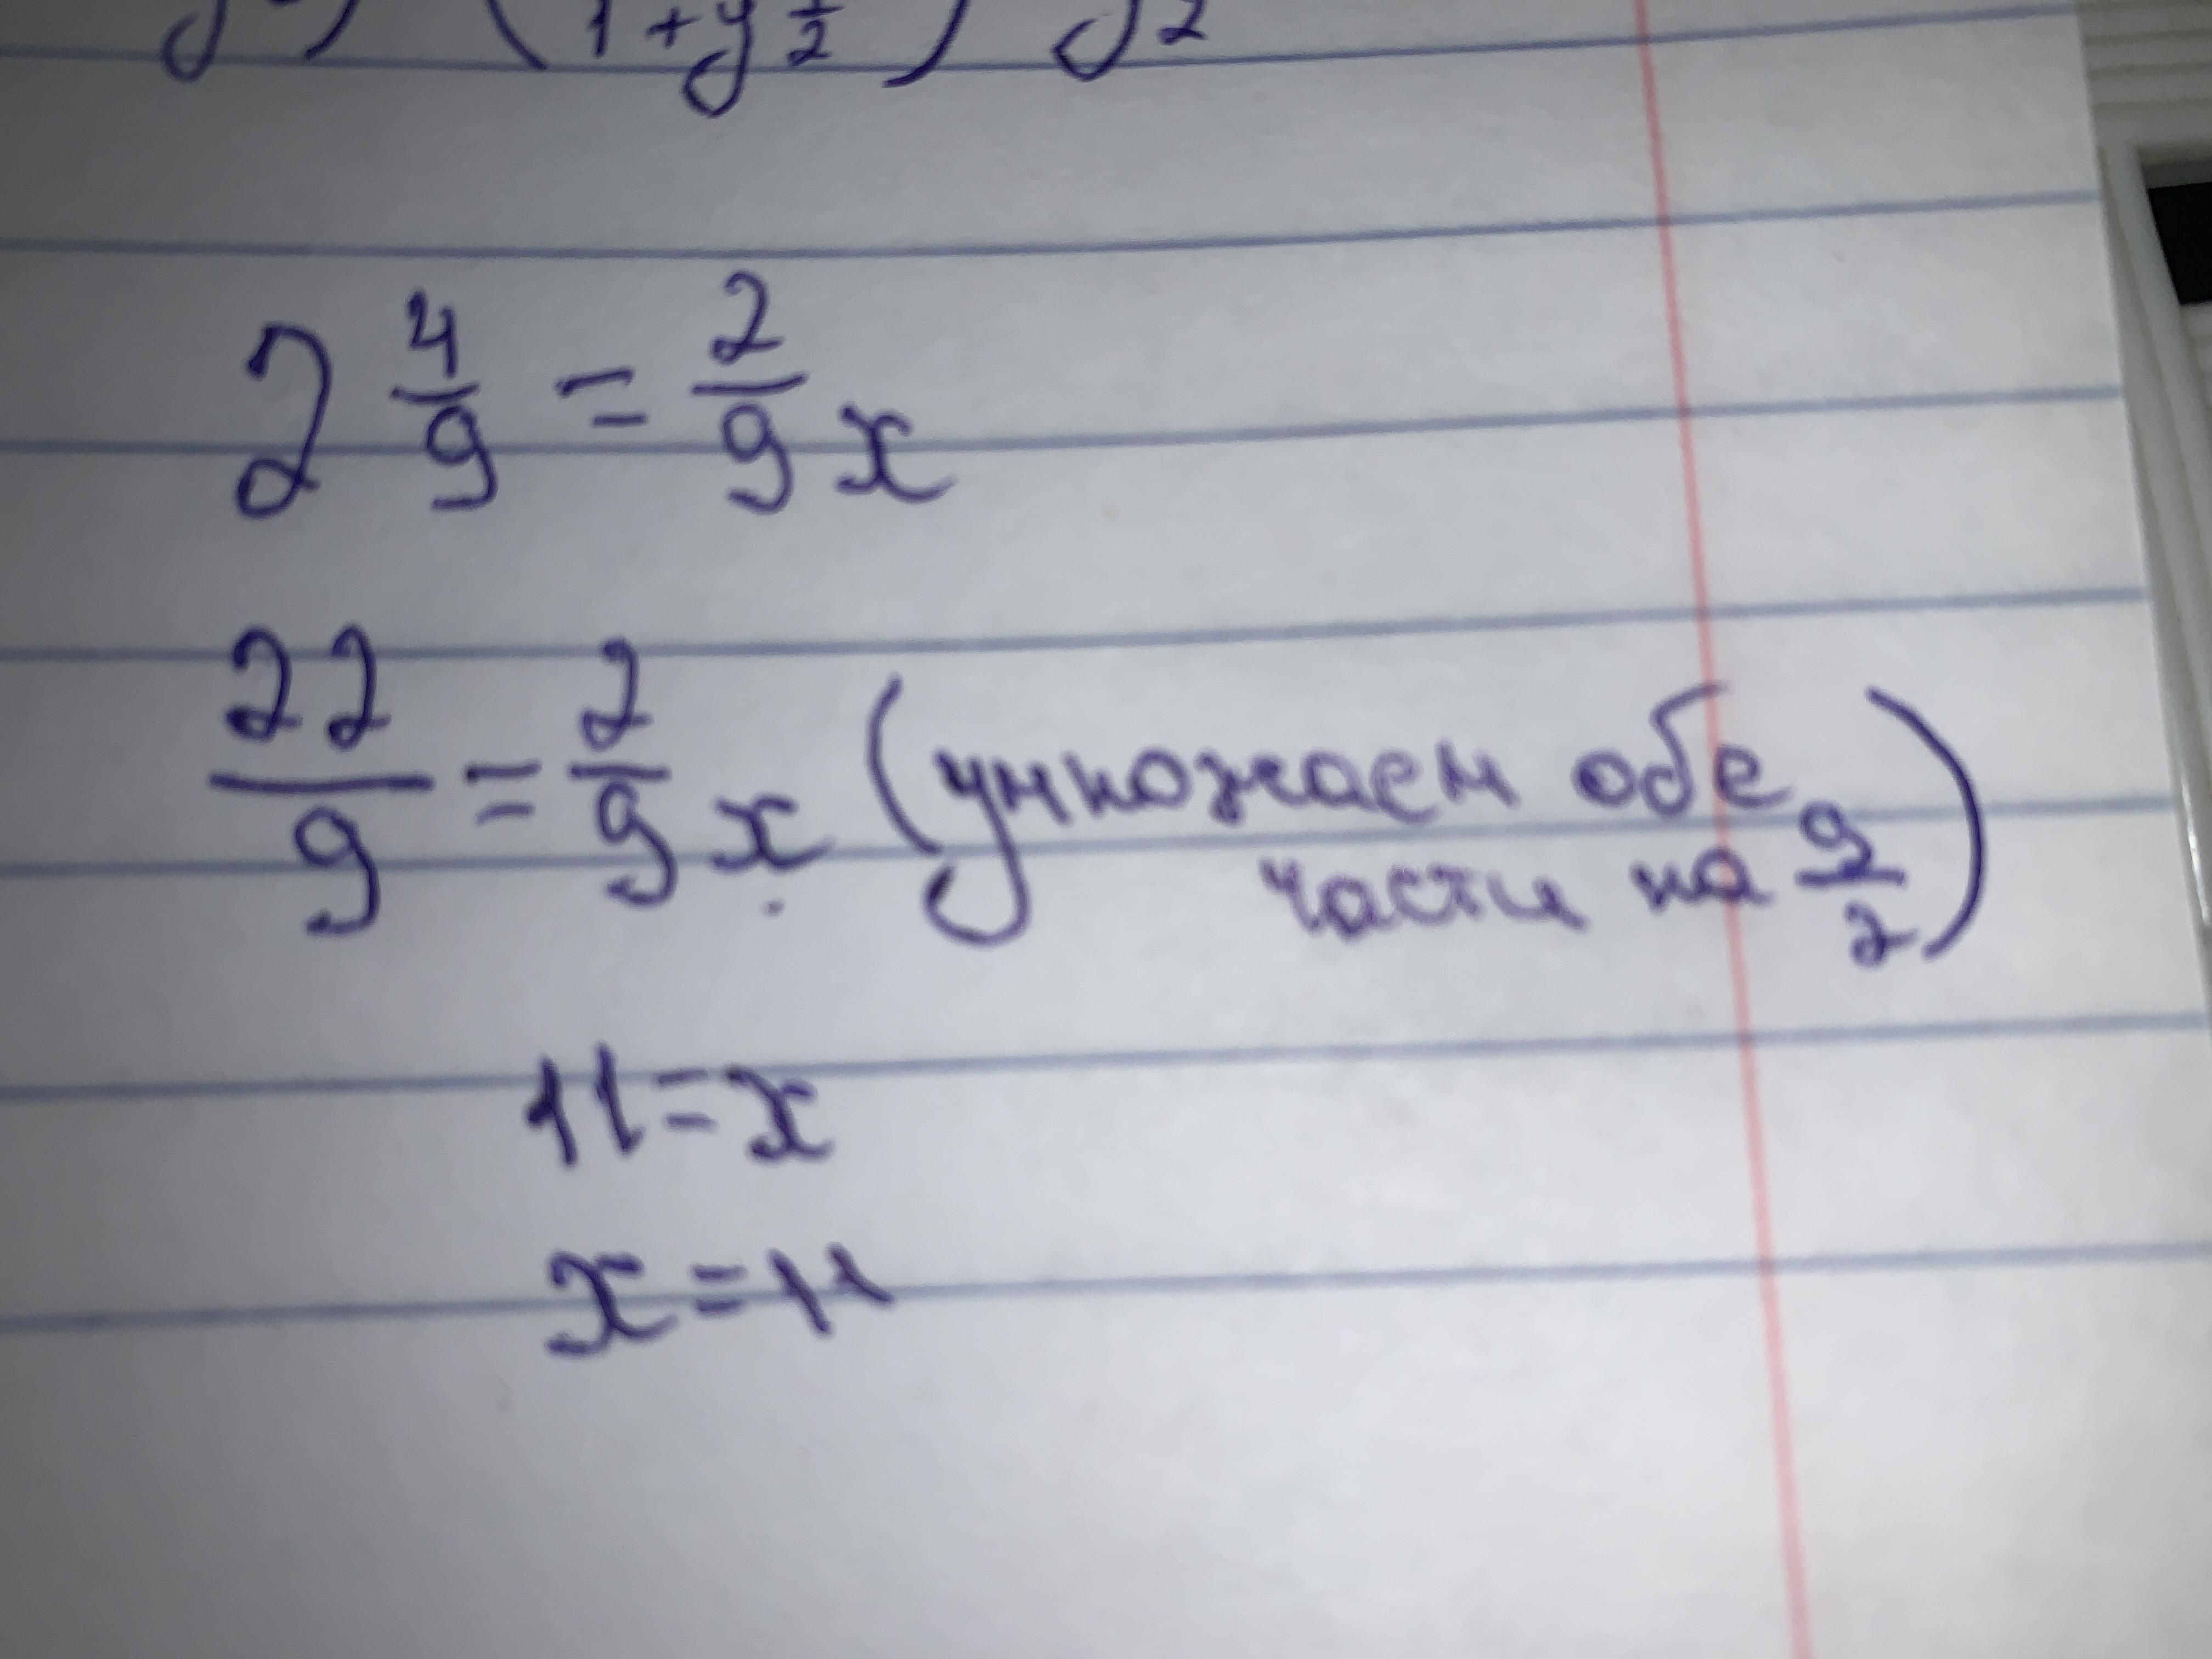 1+y^1/2) y^2
2 4/9 = 2/9 x
22/9 = 2/9 x (умножаем обе
части на 9/2)
11=x
x=11